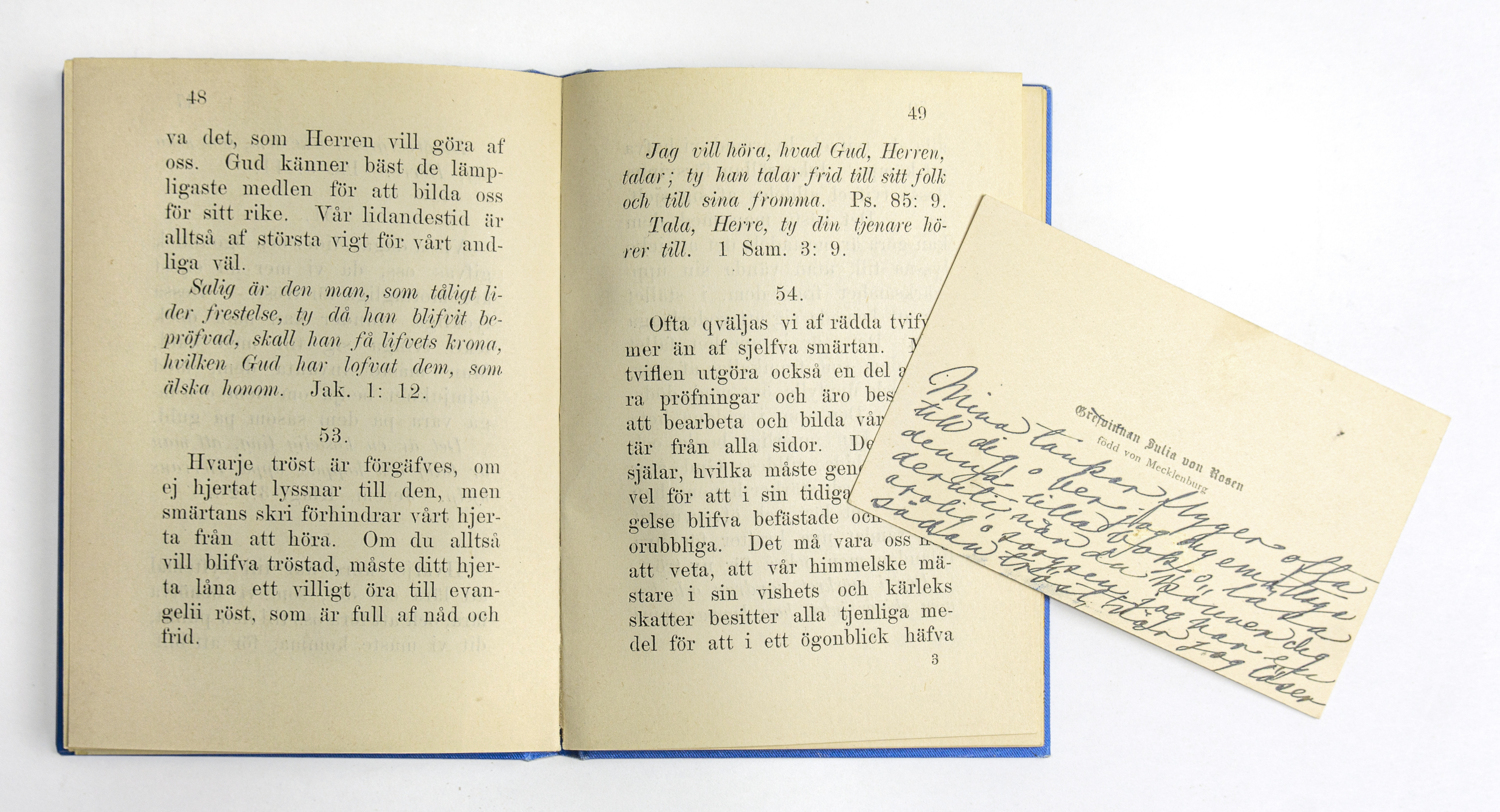 48
va det, som Herren vill göra af
oss. Gud känner bäst de lämp-
ligaste medlen för att bilda oss
för sitt rike. Vår lidandestid är
alltså af största vigt för vårt and-
liga väl.
Salig är den man, som tåligt li-
der frestelse, ty då han blifvit be-
pröfvad, skall han få lifvets krona,
hvilken Gud har lofvat dem, som
älska honom. Jak. 1: 12.
53.
Hvarje tröst är förgäfves, om
ej hjertat lyssnar till den, men
smärtans skri förhindrar vårt hjer-
ta från att höra. Om du alltså
vill blifva tröstad, måste ditt hjer-
ta låna ett villigt öra till evan-
gelii röst, som är full af nåd och
frid.
49
Jag vill höra, hvad Gud, Herren,
talar; ty han talar frid till sitt folk
och till sina fromma. Ps. 85: 9.
Tala, Herre, ty din tjenare hö-
rer till. 1 Sam. 3: 9.
54.
Ofta qväljas vi af rädda
mer än af sjelfva smärtan.
tviflen utgöra också en del
ra pröfningar och äro
att bearbeta och bilda
tär från alla sidor.
själar, hvilka måste
vel för att i sin
gelse blifva befästade
orubbliga. Det må vara oss
att veta, att vår himmelske mä-
stare i sin vishets och kärleks
skatter besitter alla tjenliga me-
del för att i ett ögonblick häfva
3
Grefvinnan Julia von Rosen
född von Mecklenburg
Mina tankar flyger ofta
till dig, ber jag dig emottaga
denna lilla bok o läsa
deruti när du känner dig
orolig o sorgsen, jag har
sådan tröst när jag läser